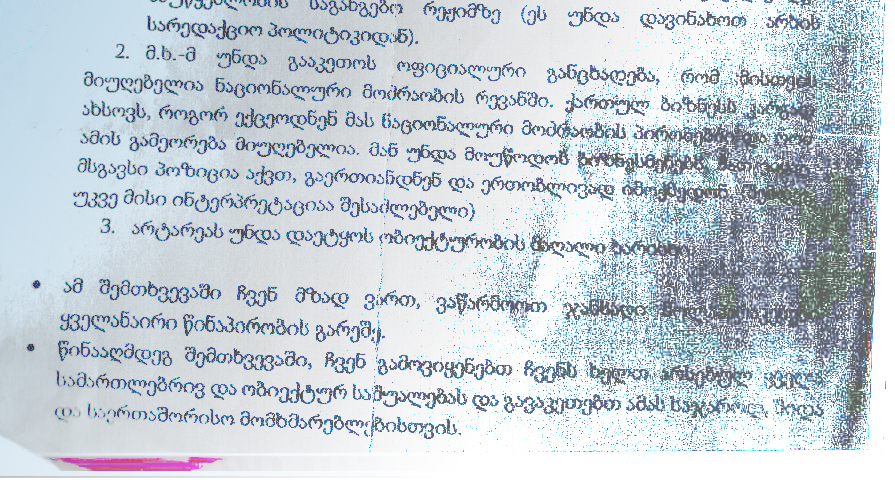 საგანგებო რეჟიმზე (ეს უნდა დავინახოთ არხის
სარედაქციო პოლიტიკიდან).
2. მ.ხ.-მ უნდა გააკეთოს ოფიციალური განცხადება, რომ მისთვის
მიუღებელია ნაციონალური მოძრაობის რევანში. ქართულ ბიზნესს კარგად
ახსოვს, როგორ ექცეოდნენ მას ნაციონალური მოძრაობის პირობებში და რომ
ამის გამეორება მიუღებელია. მან უნდა მოუწოდოს ბიზნესმენებს,
მსგავსი პოზიცია აქვთ, გაერთიანდნენ და ერთობლივად იმოქმედონ
უკვე მისი ინტერპრეტაციაა შესაძლებელი)
3. არტარეას უნდა დაეტყოს ობიექტურობის მაღალი ხარისხი.
• ამ შემთხვევაში ჩვენ მზად ვართ, ვაწარმოოთ ჯანსაღი
ყველანაირი წინაპირობის გარეშე.
• წინააღმდეგ შემთხვევაში, ჩვენ გამოვიყენებთ ჩვენს ხელთ არსებულ ყველა
სამართლებრივ და ობიექტურ საშუალებას და გავაკეთებთ ამას საჯაროდ, შიდა
და საერთაშორისო მომხმარებლებისთვის.